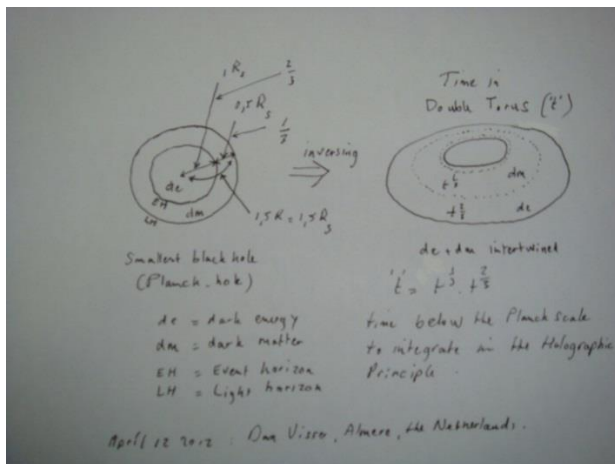 1 Rs
2/3
0,5 Rs
1/3
de
EH
LH
dm
1,5 R = 1,5 Rs
inversing
⇒
Smallest black hole
(Planck-hole)
de = dark energy
dm = dark matter
EH = Event horizon
LH = Light horizon
Time in
Double Torus ('t')
dm
t⅓
t⅔
de
de + dm intertwined
't' = t⅓ . t⅔
time below the Planck scale
to integrate in the Holographic
Principle.
April 12 2012 : Dan Visser, Almere, the Netherlands.